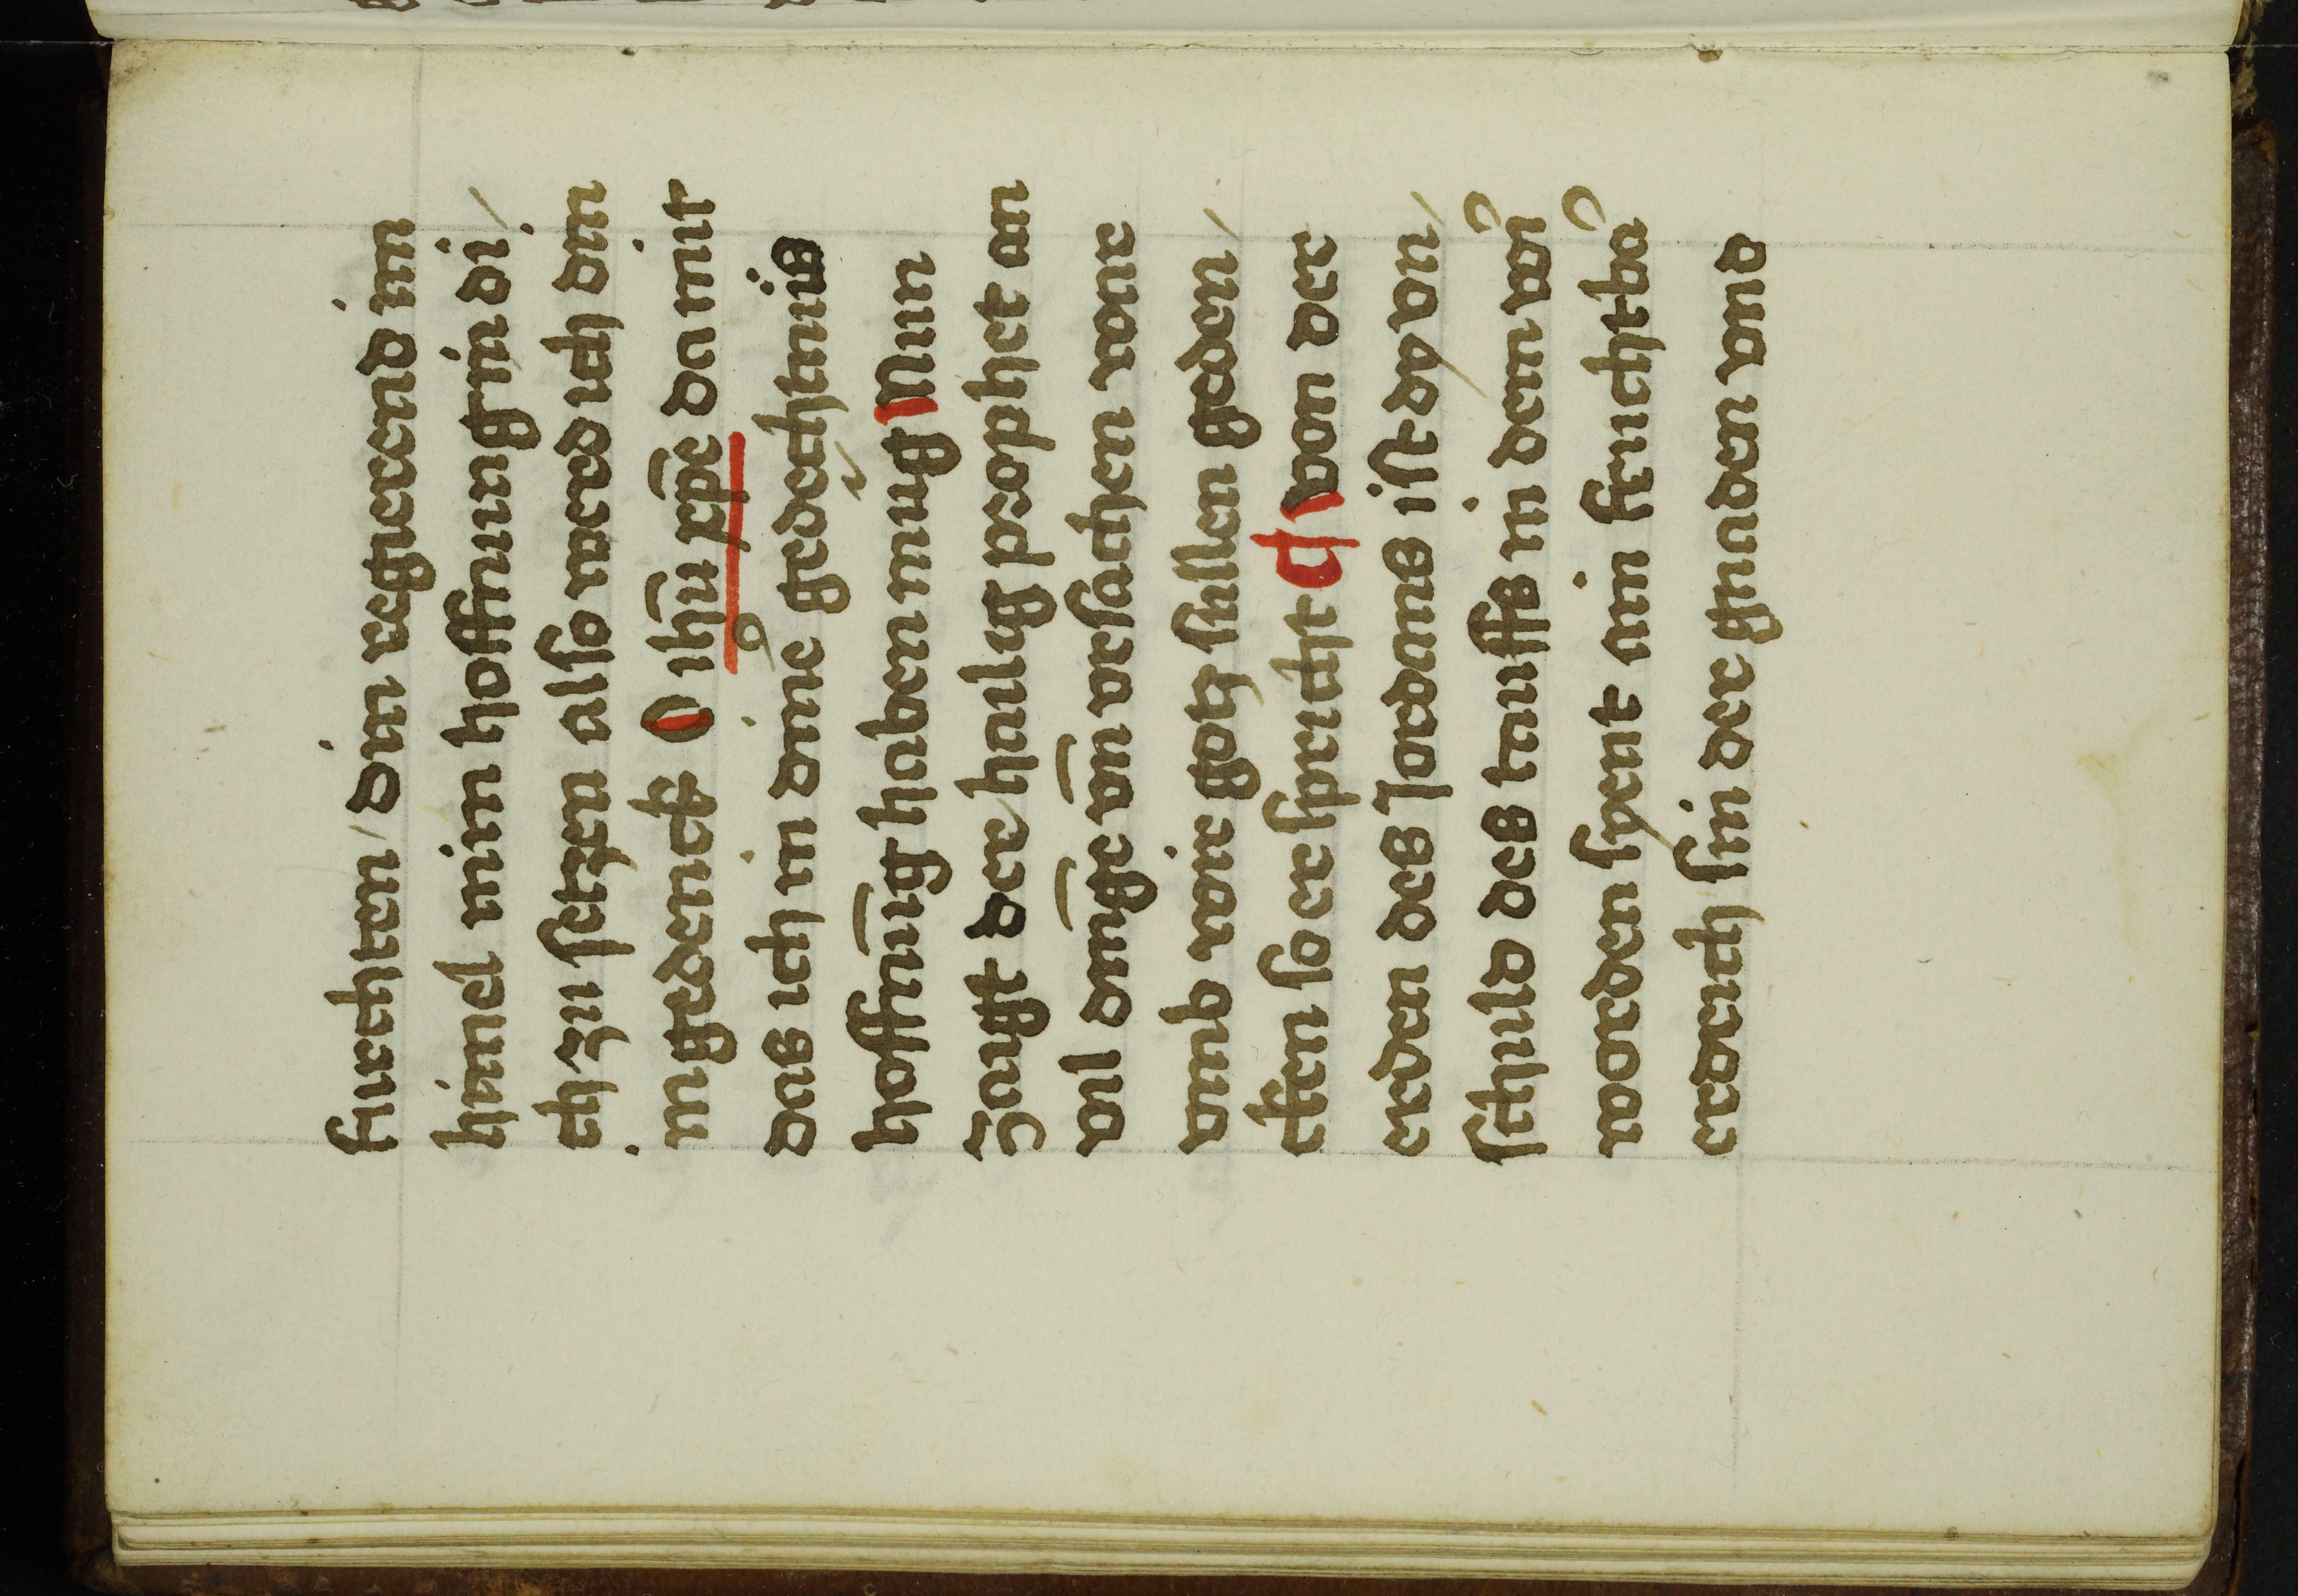 furchten / din regierend im
himel min hoffnung in di /
ch zu setzen also werd ich din
ingedenck O ihū xp̄e da mit
das ich in dine gedechtnüs
hoffnūg haben mug Nun
zaigt der hailig prophet an
vil dinge vn̄ vrsachen war
vmb wir gotz sullen geden /
cken so er spricht ¶ von der
erden des Jordans ist da von /
schild des tauffs in dem wir
worden syent ain fruchtba
erdrich sin der gnaden vnd